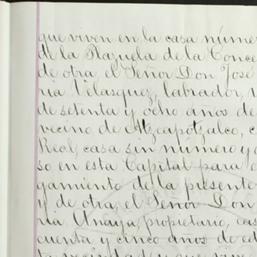 que viven en la casa núme
de la Plazuela de la Conce
de otra, el Señor Don José
ria Velasquez, labrador,
de setenta y ocho años de
vecino de Atzcapotzalco, c
Real, casa sin número y a
so en esta Capital para
gamiento de la presente
y de otra el Señor Don
ria Anaya, propietario, cas
cuenta y cinco años de ed